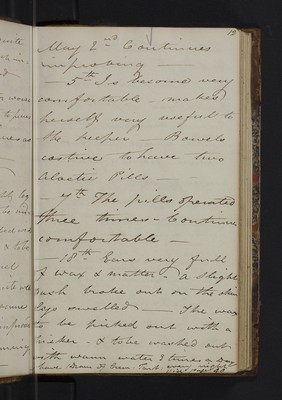 12
May 2nd Continues
improving —
— 5th Is become very
comfortable — makes
herself very useful to
the keeper — Bowels
costive to have two
Pills —
— 7th The pills operated
three times — Continues
comfortable —
— 18th Ears very full
of wax & matter — a slight
rash broke out on the skin
legs swelled — The wax
to be picked out with a
& to be washed out
with warm water 3 times a Day
have Dram of Crem. Tart. every night